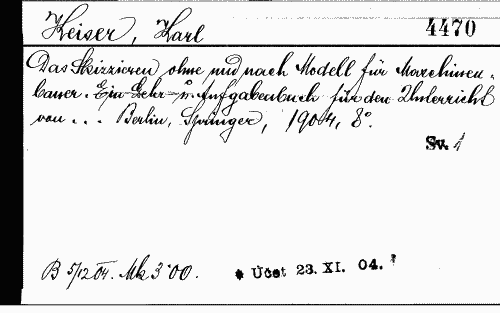 Keiser, Karl 4470
Das Skizzieren ohne und nach Modell für Maschinen-
bauer. Ein Lehr- u. Aufgabenbuch für den Unterricht
von... Berlin, Springer, 1904, 8°.
Sv. 1
B 5/12 04. Mk 3·00. * Účet 23. XI. 04. *